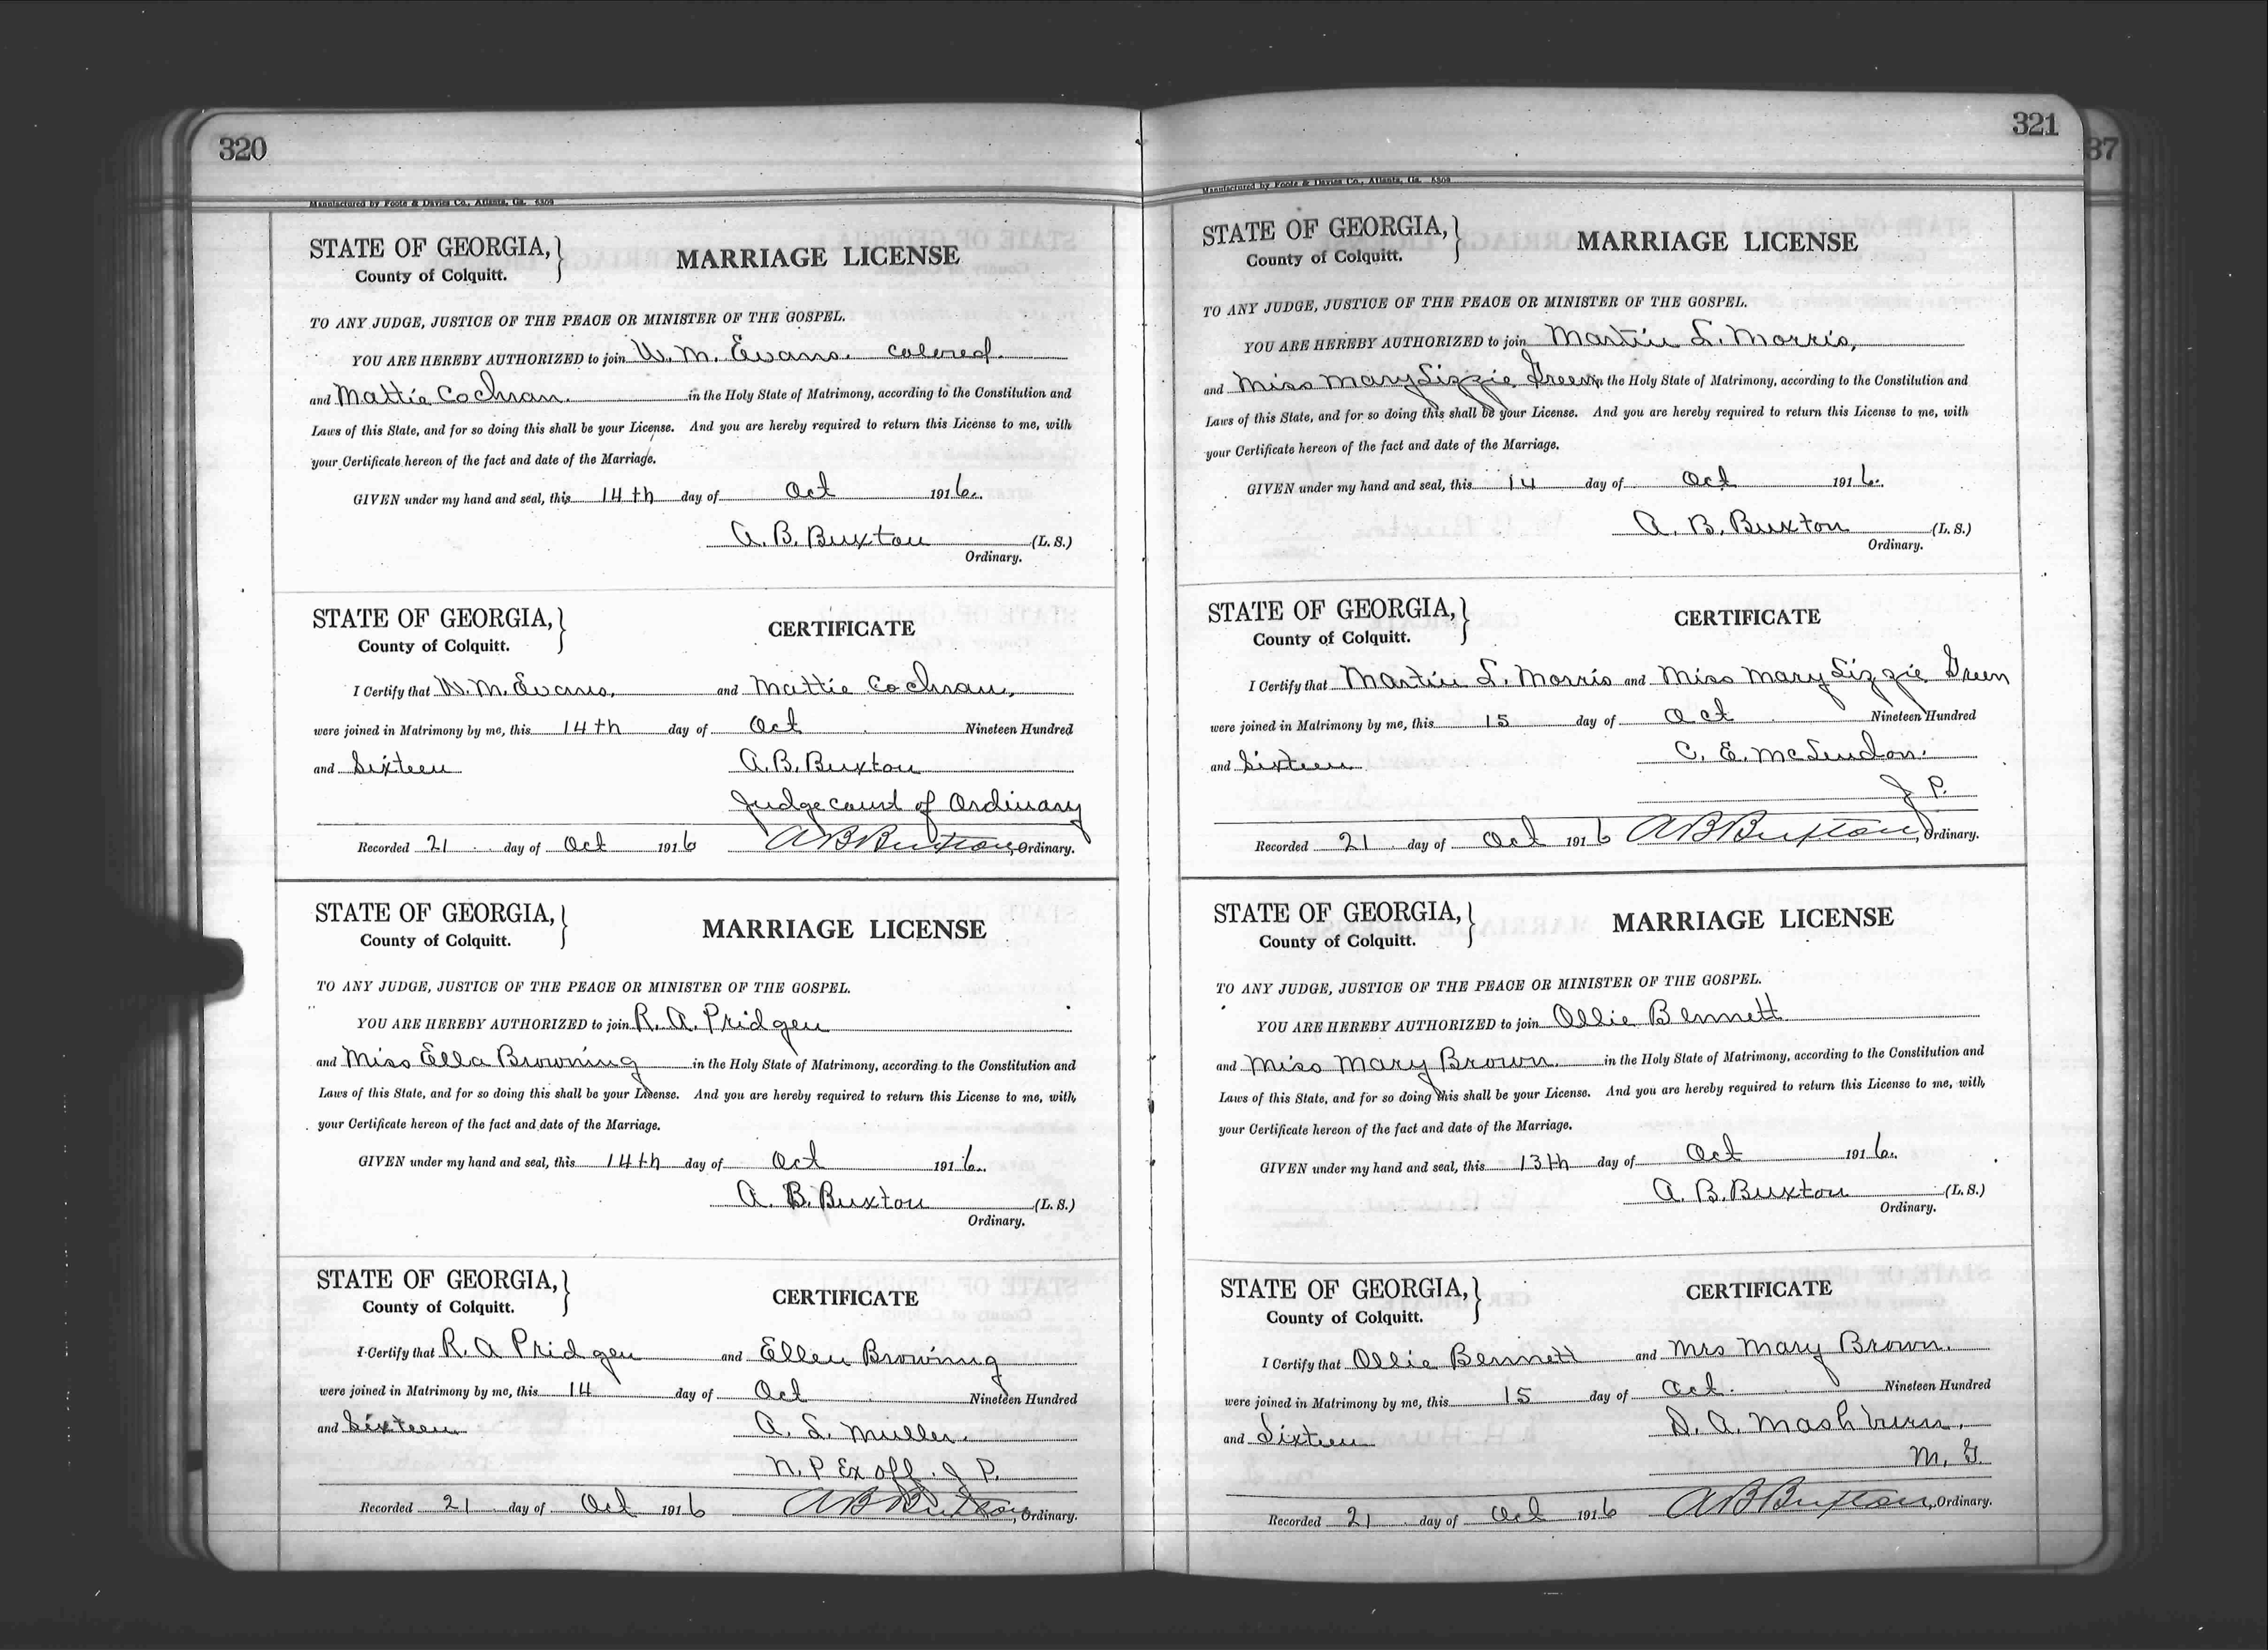 320
Manufactured by Foote & Davies Co., Atlanta, Ga. 6308
STATE OF GEORGIA,
County of Colquitt.
MARRIAGE LICENSE
TO ANY JUDGE, JUSTICE OF THE PEACE OR MINISTER OF THE GOSPEL.
YOU ARE HEREBY AUTHORIZED to join W. M. Evans. colored.
and Mattie Cochran. in the Holy State of Matrimony, according to the Constitution and
Laws of this State, and for so doing this shall be your License. And you are hereby required to return this License to me, with
your Certificate hereon of the fact and date of the Marriage.
GIVEN under my hand and seal, this 14th day of Oct 1916.
A. B. Buxton (L. S.)
Ordinary.
STATE OF GEORGIA,
County of Colquitt.
CERTIFICATE
I Certify that W. M. Evans, and Mattie Cochran,
were joined in Matrimony by me, this 14th day of Oct Nineteen Hundred
and Sixteen A. B. Buxton
Judge court of Ordinary
Recorded 21 day of Oct 1916 A B Buxton, Ordinary.
STATE OF GEORGIA,
County of Colquitt.
MARRIAGE LICENSE
TO ANY JUDGE, JUSTICE OF THE PEACE OR MINISTER OF THE GOSPEL.
YOU ARE HEREBY AUTHORIZED to join R. A. Pridgen
and Miss Ella Browning in the Holy State of Matrimony, according to the Constitution and
Laws of this State, and for so doing this shall be your License. And you are hereby required to return this License to me, with
your Certificate hereon of the fact and date of the Marriage.
GIVEN under my hand and seal, this 14th day of Oct 1916.
A. B. Buxton (L. S.)
Ordinary.
STATE OF GEORGIA,
County of Colquitt.
CERTIFICATE
I Certify that R. A Pridgen and Ellen Browning
were joined in Matrimony by me, this 14 day of Oct Nineteen Hundred
and Sixteen A. L. Muller.
N. P Ex off. J P.
Recorded 21 day of Oct 1916 A B Buxton, Ordinary.
321
37
Manufactured by Foote & Davies Co., Atlanta, Ga. 6308
STATE OF GEORGIA,
County of Colquitt.
MARRIAGE LICENSE
TO ANY JUDGE, JUSTICE OF THE PEACE OR MINISTER OF THE GOSPEL.
YOU ARE HEREBY AUTHORIZED to join Martin L. Morris,
and Miss Mary Lizzie Green in the Holy State of Matrimony, according to the Constitution and
Laws of this State, and for so doing this shall be your License. And you are hereby required to return this License to me, with
your Certificate hereon of the fact and date of the Marriage.
GIVEN under my hand and seal, this 14 day of Oct 1916.
A. B. Buxton (L. S.)
Ordinary.
STATE OF GEORGIA,
County of Colquitt.
CERTIFICATE
I Certify that Martin L. Morris and Miss Mary Lizzie Green
were joined in Matrimony by me, this 15 day of Oct Nineteen Hundred
and Sixteen C. E. McLendon.
J P.
Recorded 21 day of Oct 1916 A B Buxton, Ordinary.
STATE OF GEORGIA,
County of Colquitt.
MARRIAGE LICENSE
TO ANY JUDGE, JUSTICE OF THE PEACE OR MINISTER OF THE GOSPEL.
YOU ARE HEREBY AUTHORIZED to join Ollie Bennett
and Miss Mary Brown. in the Holy State of Matrimony, according to the Constitution and
Laws of this State, and for so doing this shall be your License. And you are hereby required to return this License to me, with
your Certificate hereon of the fact and date of the Marriage.
GIVEN under my hand and seal, this 13th day of Oct 1916.
A. B. Buxton (L. S.)
Ordinary.
STATE OF GEORGIA,
County of Colquitt.
CERTIFICATE
I Certify that Ollie Bennett and Mrs Mary Brown.
were joined in Matrimony by me, this 15 day of Oct. Nineteen Hundred
and Sixteen D. A. Mashburn.
M. G.
Recorded 21 day of Oct 1916 A B Buxton, Ordinary.